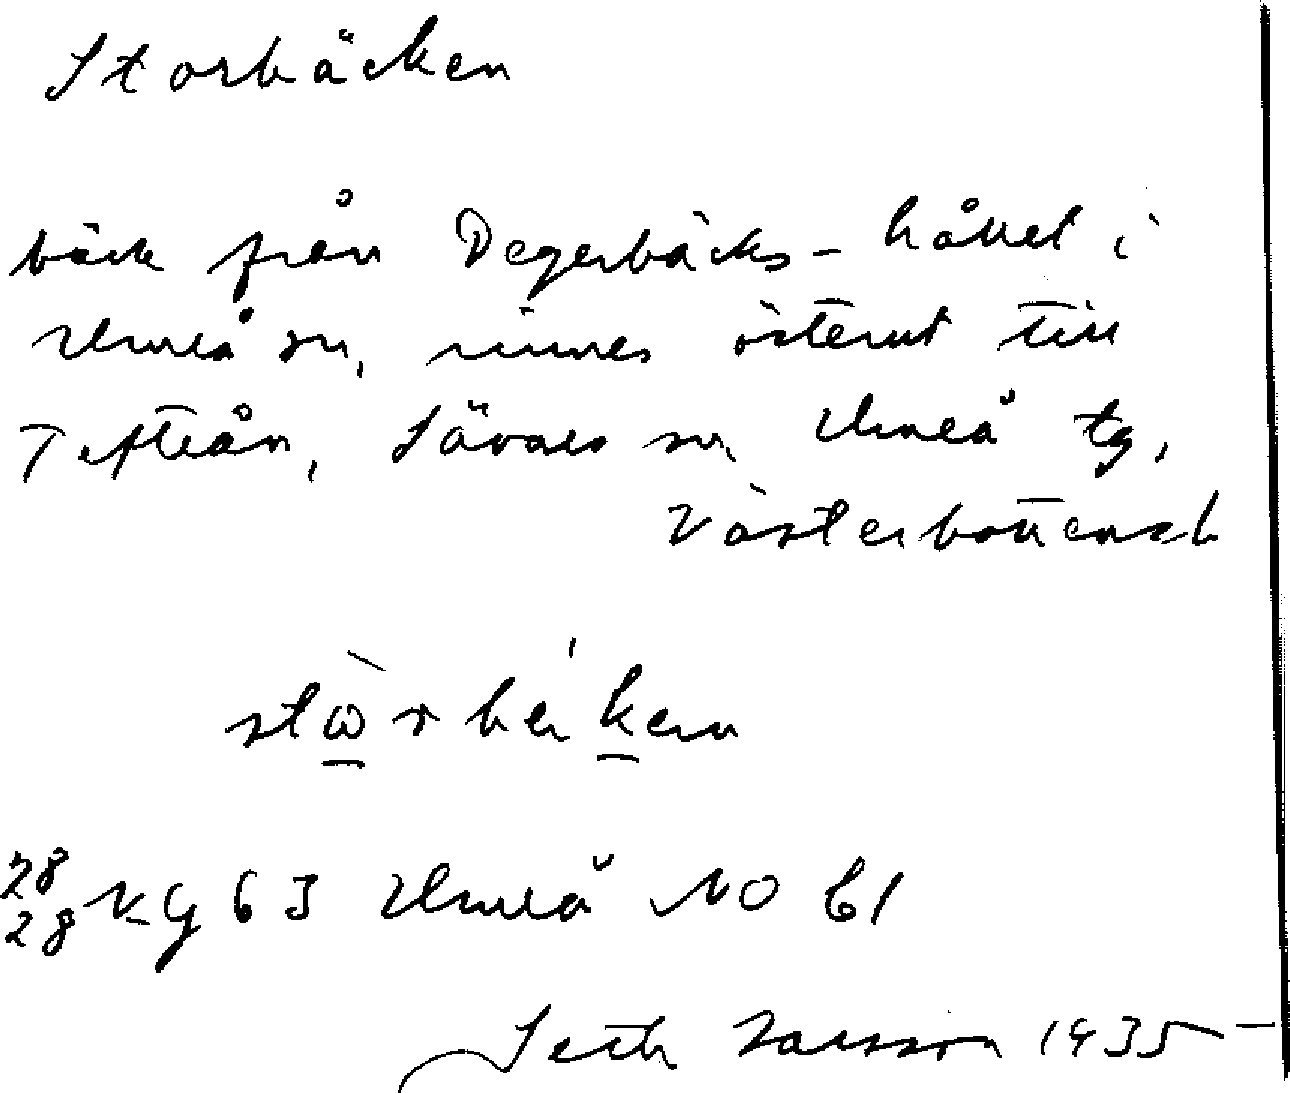 Storbäcken
bäck från Degerbäcks-hålet i
Umeå sn, rinner österut till
Tefteån, Sävars sn Umeå tg,
Västerbottens l
28
28 KG 63 Umeå NO b1
Seth Larsson 1935